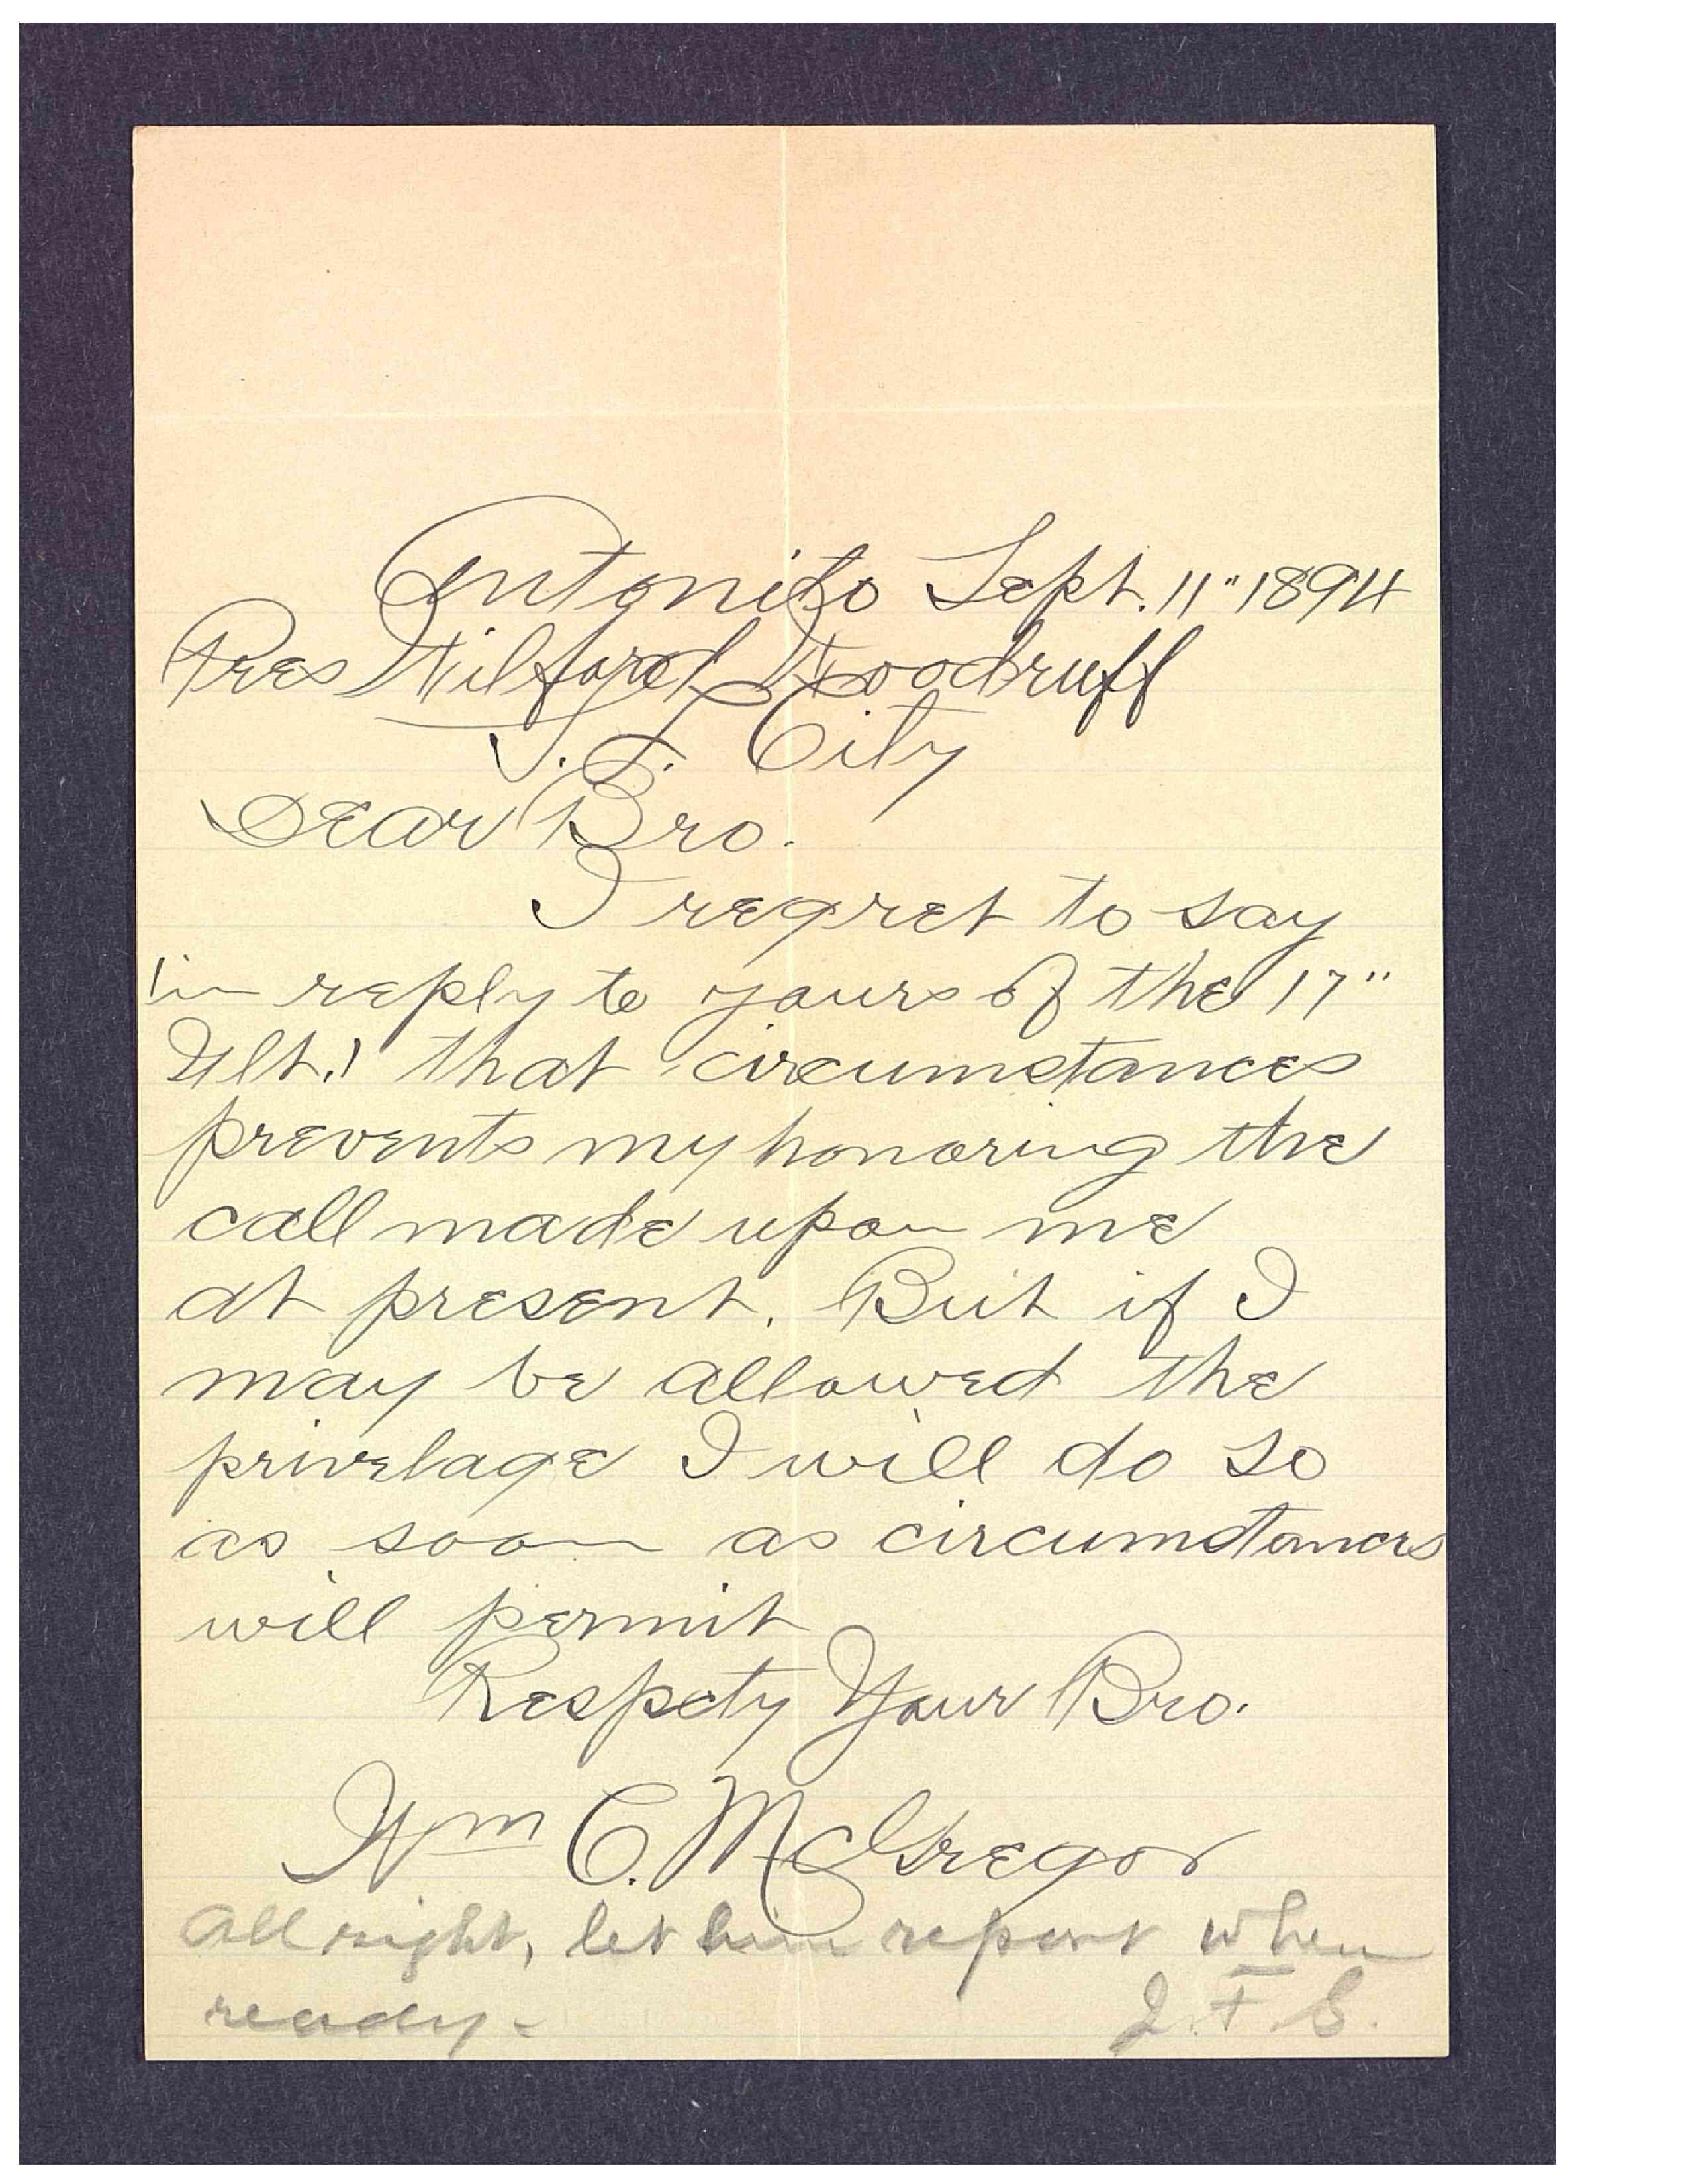 Antonito Sept. 11" 1894
Pres Wilford Woodruff
S. L. City
Dear Bro.
I regret to say
in reply to yours of the 17"
Ult. that circumstances
prevents my honoring the
call made upon me
at present. But if I
may be allowed the
privelage I will do so
as soon as circumstances
will permit
Respcty Your Bro.
Wm C. McGregor
All right, let him report when
ready-
J. F. S.